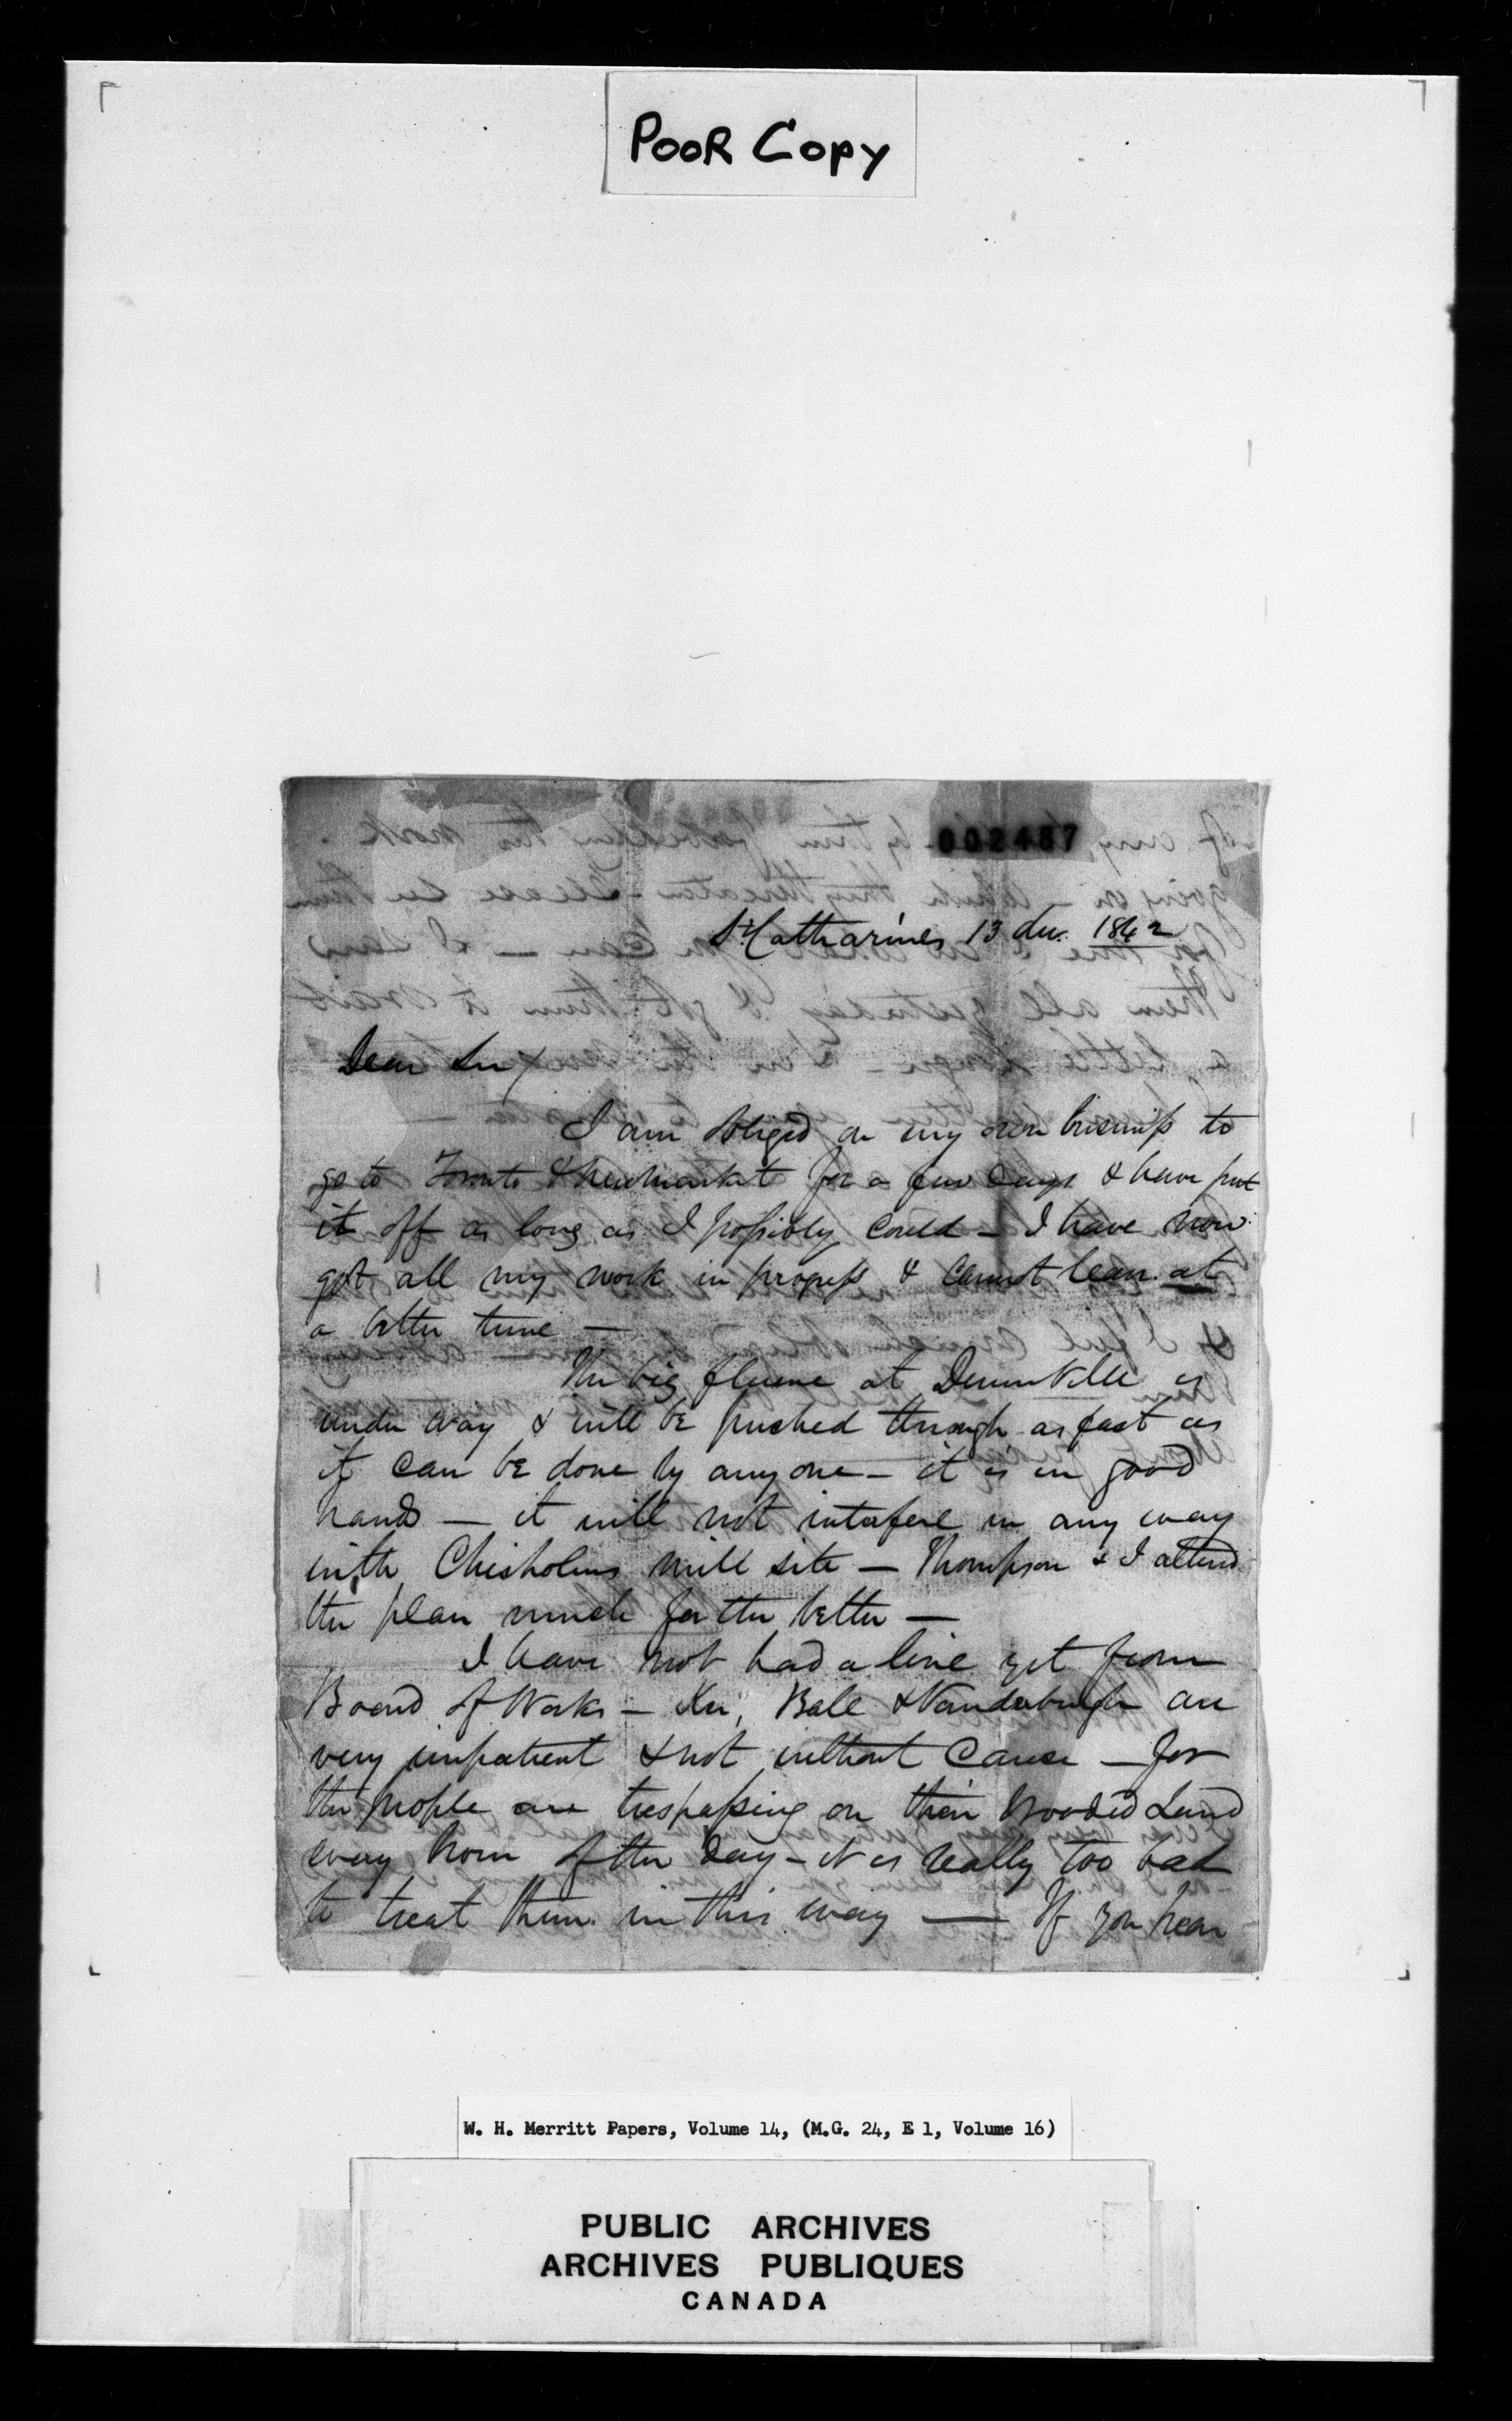 POOR Copy
002487
St Catharines 13 Dec. 1842
Dear Sir/
I am obliged on my own business to
go to Toronto & Newmarket for a few days & have put
it off as long as I possibly could - I have now
got all my work in progress & cannot leave at
a better time —
The big flume at Dunnville is
under way & will be pushed through as fast as
it can be done by any one - it is in good
hands — it will not interfere in any way
with Chisholms mill site — Thompson & I altered
the plan much for the better —
I have not had a line yet from
Board of Works - Ker, Ball & Vanderburgh are
very impatient & not without cause — for
the people are trespassing on their wooded Land
every hour of the day - it is really too bad
to treat them in this way — If you hear
W. H. Merritt Papers, Volume 14, (M.G. 24, E 1, Volume 16)
PUBLIC ARCHIVES
ARCHIVES PUBLIQUES
CANADA